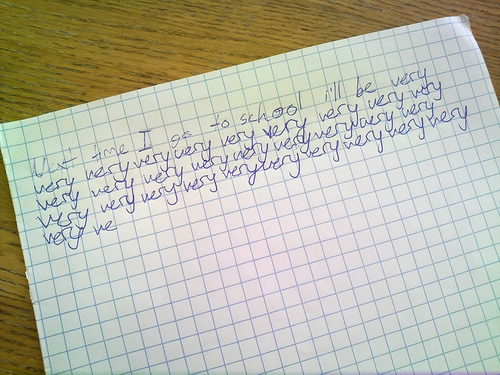 Next time I go to school i'll be very
very very very very very very very very very
very very very very very very very very very very
very very very very very very very very very very
very ve